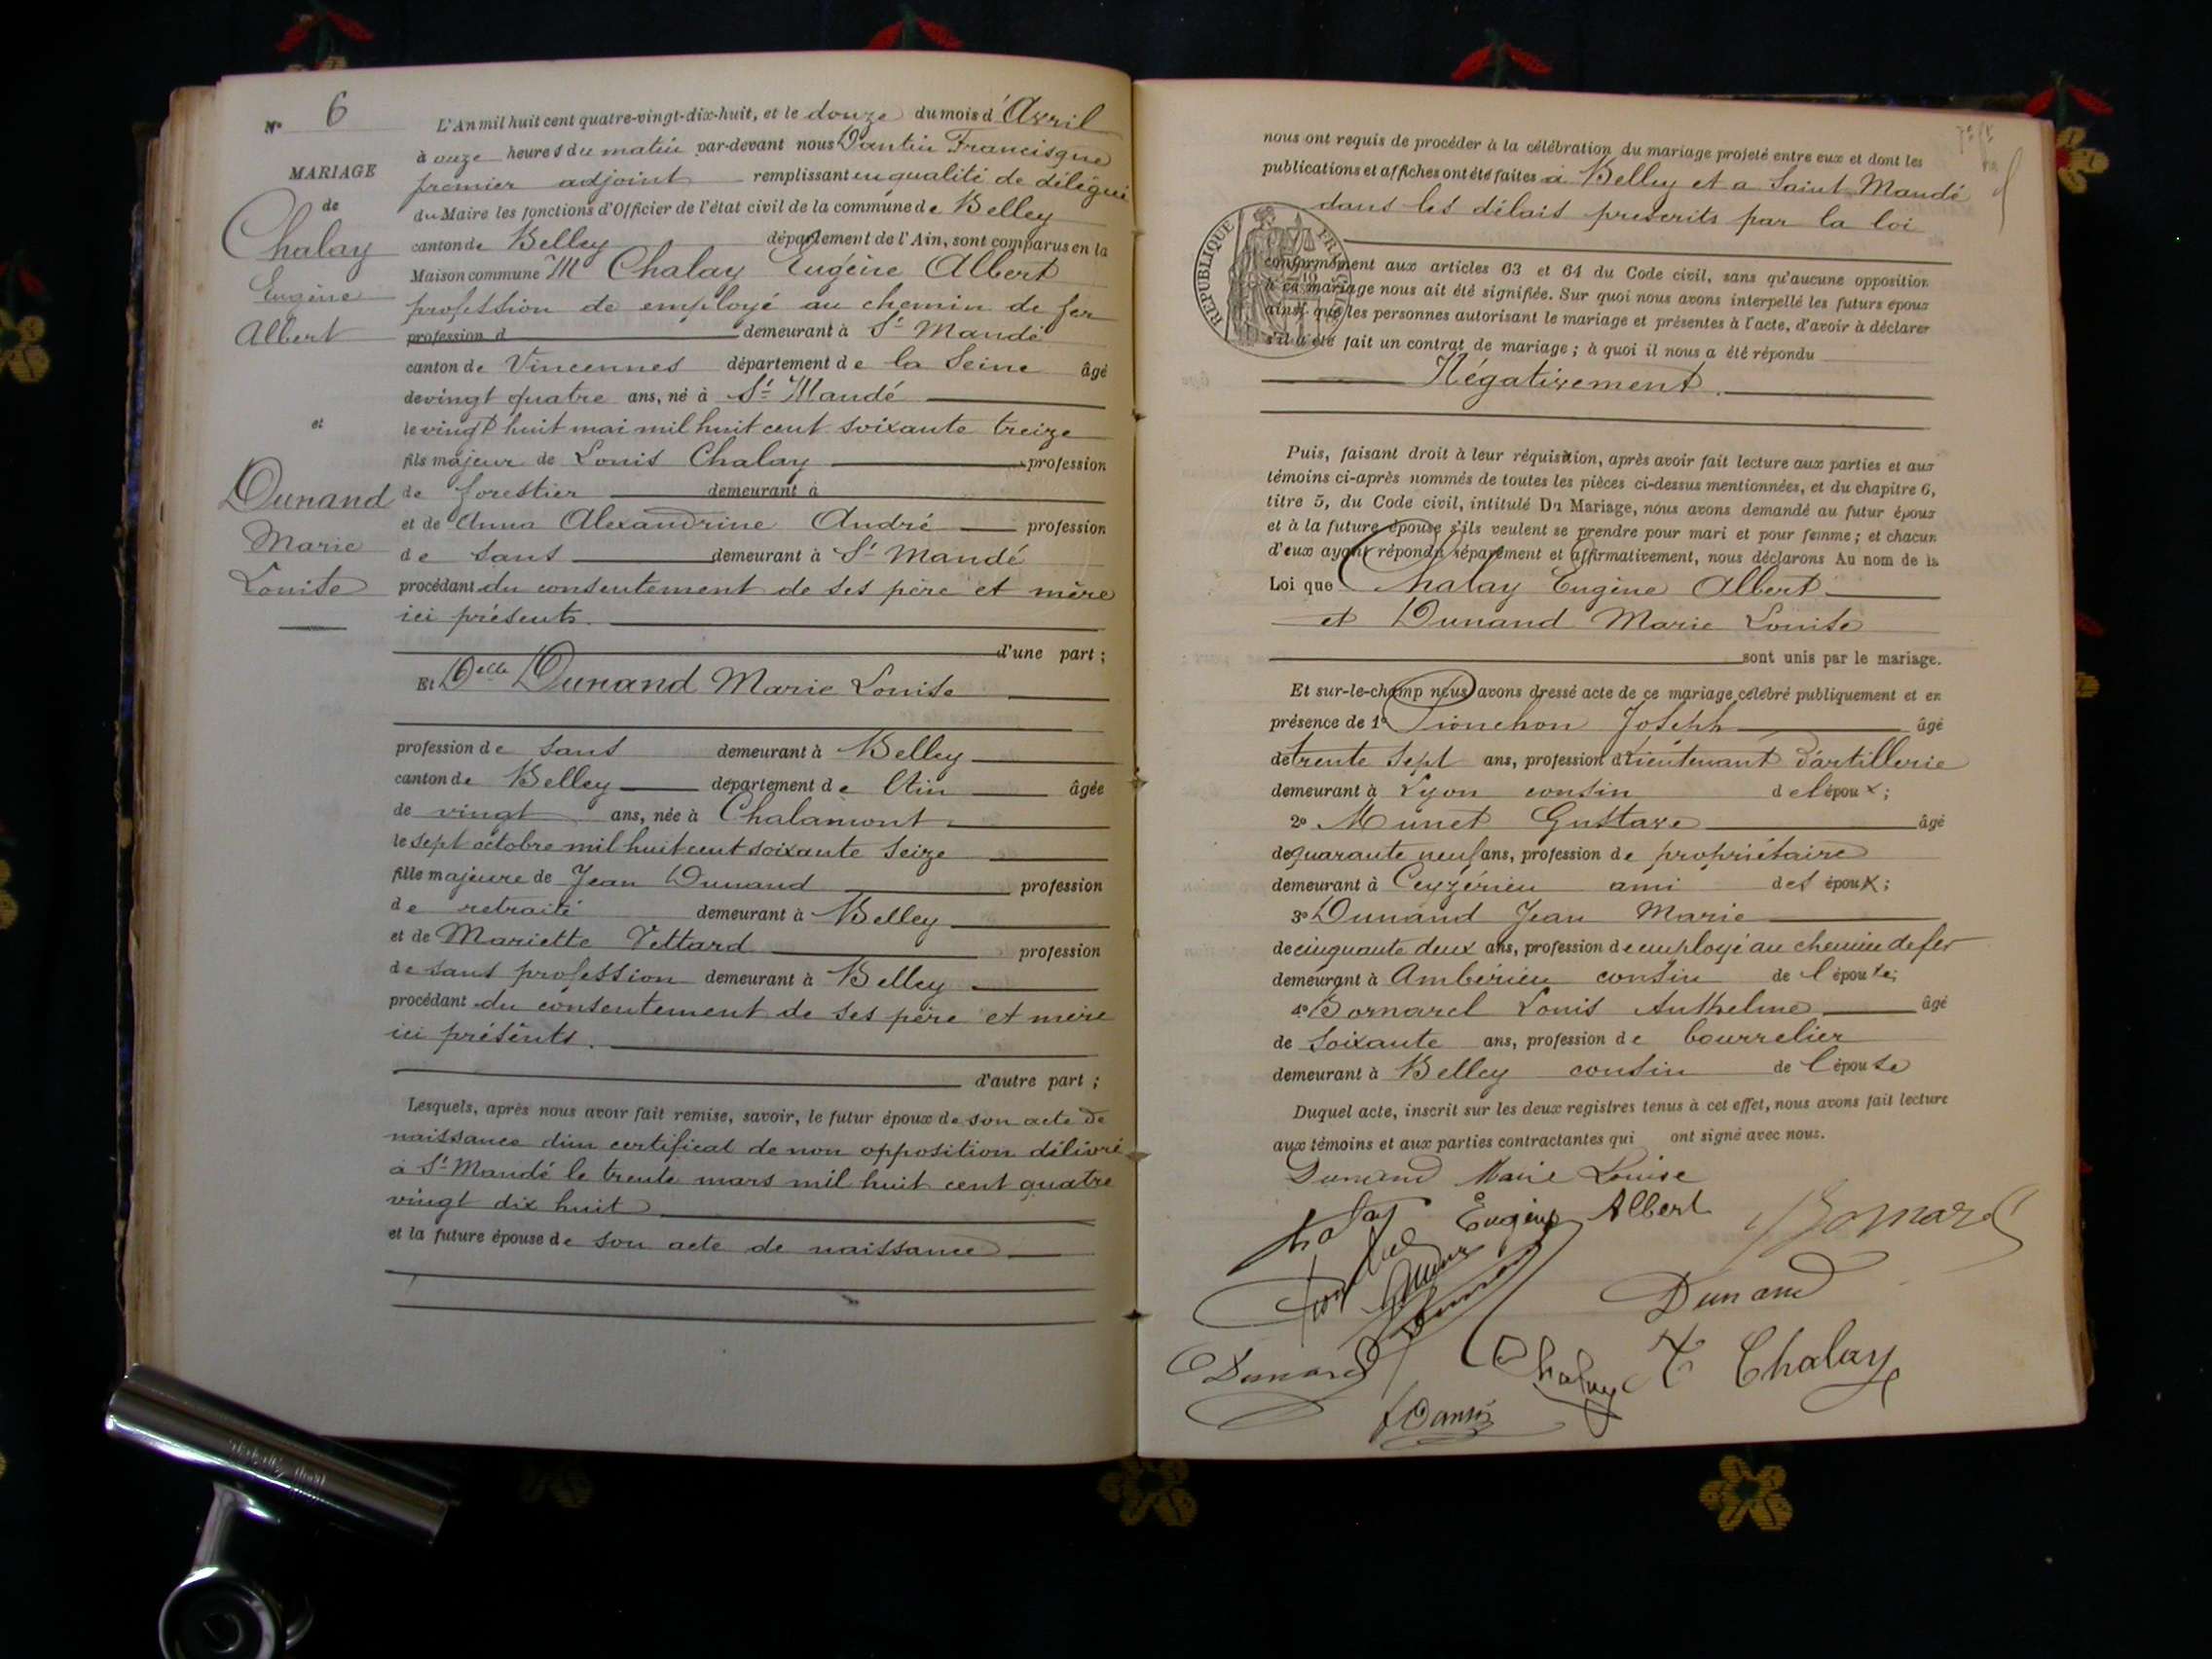 N° 6
MARIAGE
de
Chalay
Eugène
Albert
et
Dunand
Marie
Louise
L'An mil huit cent quatre-vingt-dix-huit, et le douze du mois d'Avril
à onze heures du matin par-devant nous Dantin Francisque
premier adjoint remplissant en qualité de délégué
du Maire les fonctions d'Officier de l'état civil de la commune de Belley
canton de Belley département de l'Ain, sont comparus en la
Maison commune M Chalay Eugène Albert
profession de employé au chemin de fer
profession d demeurant à St Mandé
canton de Vincennes département de la Seine âgé
de vingt quatre ans, né à St Mandé
le vingt huit mai mil huit cent soixante treize
fils majeur de Louis Chalay profession
de forestier demeurant à
et de Anna Alexandrine André profession
de sans demeurant à St Mandé
procédant du consentement de ses père et mère
ici présents.
d'une part ;
Et Delle Dunand Marie Louise
profession de sans demeurant à Belley
canton de Belley département de l'Ain âgée
de vingt ans, née à Chalamont
le sept octobre mil huit cent soixante seize
fille majeure de Jean Dunand profession
de retraité demeurant à Belley
et de Mariette Vettard profession
de sans profession demeurant à Belley
procédant du consentement de ses père et mère
ici présents.
d'autre part ;
Lesquels, après nous avoir fait remise, savoir, le futur époux de son acte de
naissance d'un certificat de non opposition délivré
à St Mandé le trente mars mil huit cent quatre
vingt dix huit
et la future épouse de son acte de naissance
nous ont requis de procéder à la célébration du mariage projeté entre eux et dont les
publications et affiches ont été faites à Belley et a Saint Mandé
dans les délais prescrits par la loi
RÉPUBLIQUE FRA
conformément aux articles 63 et 64 du Code civil, sans qu'aucune opposition
à ce mariage nous ait été signifiée. Sur quoi nous avons interpellé les futurs époux
ainsi que les personnes autorisant le mariage et présentes à l'acte, d'avoir à déclarer
s'il a été fait un contrat de mariage ; à quoi il nous a été répondu
Négativement.
Puis, faisant droit à leur réquisition, après avoir fait lecture aux parties et aux
témoins ci-après nommés de toutes les pièces ci-dessus mentionnées, et du chapitre 6,
titre 5, du Code civil, intitulé Du Mariage, nous avons demandé au futur époux
et à la future épouse s'ils veulent se prendre pour mari et pour femme ; et chacun
d'eux ayant répondu séparément et affirmativement, nous déclarons Au nom de la
Loi que Chalay Eugène Albert
et Dunand Marie Louise
sont unis par le mariage.
Et sur-le-champ nous avons dressé acte de ce mariage célébré publiquement et en
présence de 1° Pionchon Joseph âgé
de trente sept ans, profession de Lieutenant d'artillerie
demeurant à Lyon cousin de l'époux ;
2° Munet Gustave âgé
de quarante neuf ans, profession de propriétaire
demeurant à Ceyzérieu ami des époux ;
3° Dunand Jean Marie
de cinquante deux ans, profession de employé au chemin de fer
demeurant à Ambérieu cousin de l'épouse ;
4° Bornarel Louis Anthelme âgé
de soixante ans, profession de bourrelier
demeurant à Belley cousin de l'épouse
Duquel acte, inscrit sur les deux registres tenus à cet effet, nous avons fait lecture
aux témoins et aux parties contractantes qui ont signé avec nous.
Dunand Marie Louise
Chalay Eugène Albert
Dunand
Dunand
Chalay
Chalay